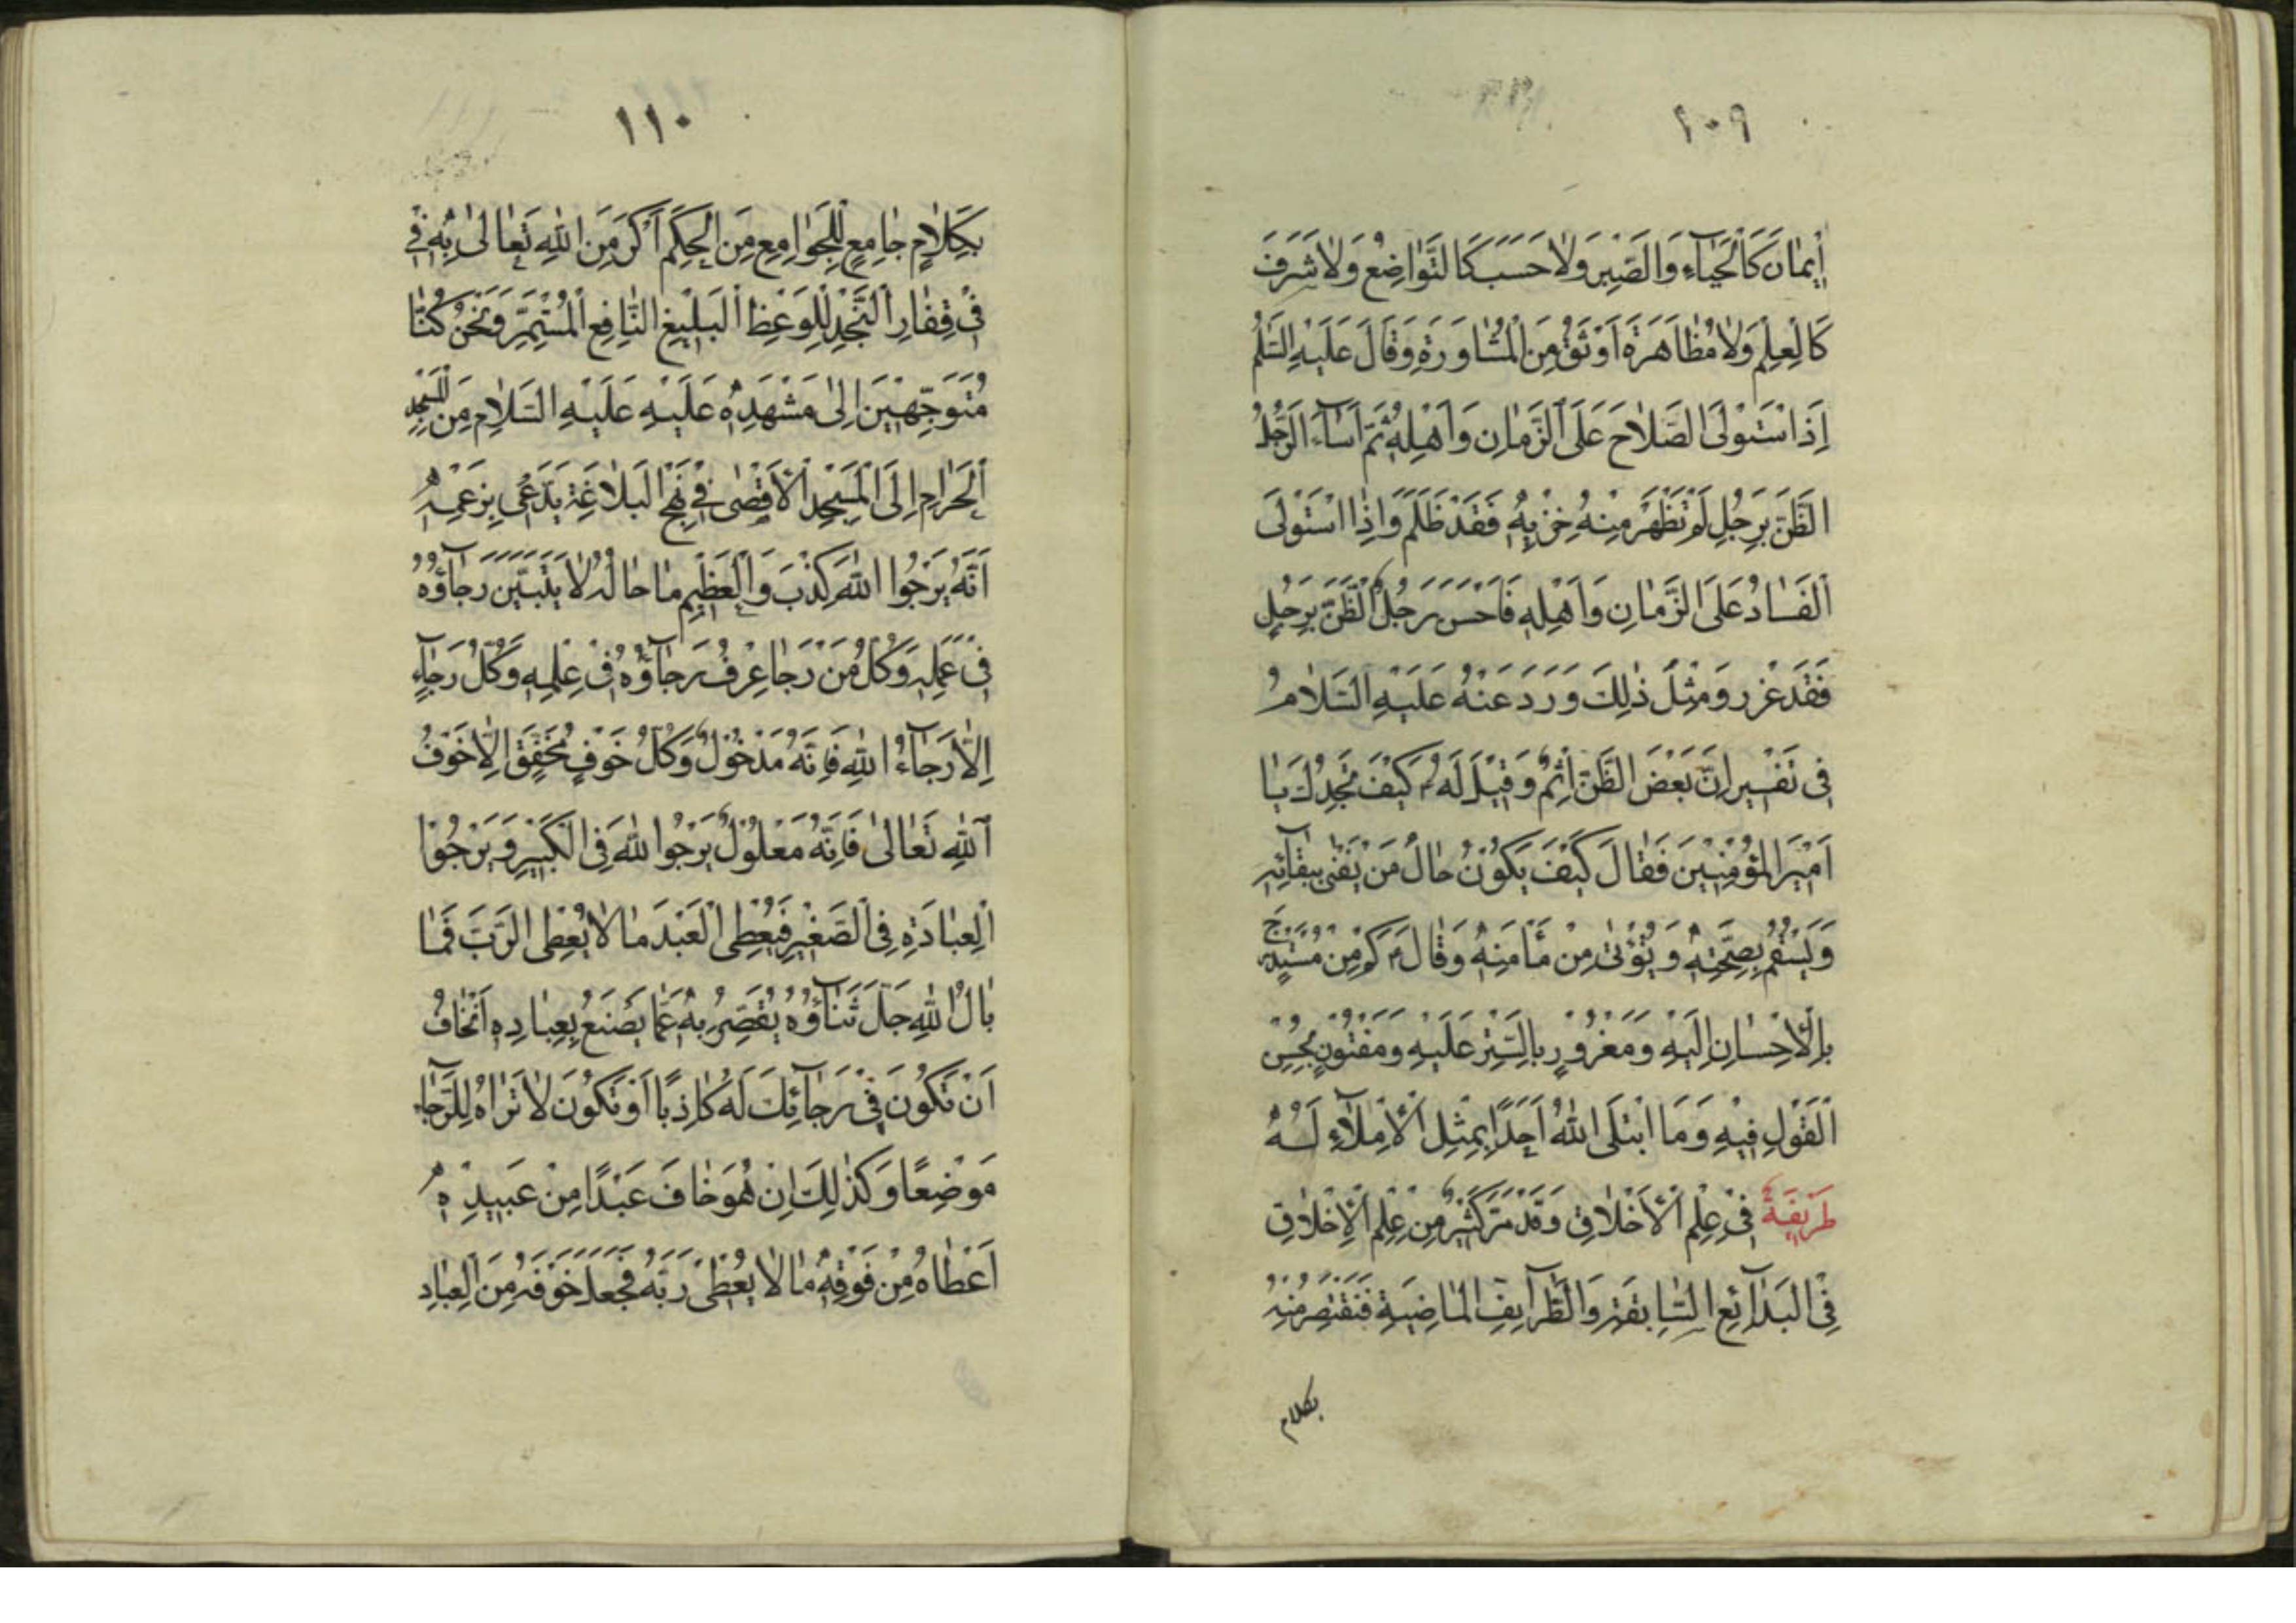 ١٠٩
إِيمَانَ كَالْحَيَاءِ وَالصَّبْرِ وَلَا حَسَبَ كَالتَّوَاضُعِ وَلَا شَرَفَ
كَالْعِلْمِ وَلَا مُظَاهَرَةَ اَوْثَقُ مِنَ الْمُشَاوَرَةِ وَقَالَ عَلَيْهِ السَّلَمُ
اِذَا اسْتَوْلَى الصَّلَاحُ عَلَى الزَّمَانِ وَاَهْلِهِ ثُمَّ اَسَاءَ الرَّجُلُ
الظَّنَّ بِرَجُلٍ لَمْ تَظْهَرْ مِنْهُ خِزْيِهِ فَقَدْ ظَلَمَ وَاِذَا اسْتَوْلَى
الْفَسَادُ عَلَى الزَّمَانِ وَاَهْلِهِ فَاَحْسَنَ رَجُلٌ الظَّنَّ بِرَجُلٍ
فَقَدْ غرر وَمِثْلَ ذٰلِكَ وَرَدَ عَنْهُ عَلَيْهِ السَّلَامُ
فِي تَفْسِيرِ اِنَّ بَعْضَ الظَّنِّ اِثْمٌ وَقِيْلَ لَهُ كَيْفَ تَجِدُكَ يَا
اَمِيْرَ الْمُؤْمِنِيْنَ فَقَالَ كَيْفَ يَكُوْنُ حَالُ مَنْ يَفْنٰى بِبَقَآئِهِ
وَيَسْقُمُ بِصِحَّتِهِ وَيُؤْتٰى مِنْ مَأْمَنِهِ وَقَالَ كَمْ مِنْ مُسْتَدْرَجٍ
بِالْاِحْسَانِ اِلَيْهِ وَمَغْرُوْرٍ بِالسَّتْرِ عَلَيْهِ وَمَفْتُوْنٍ بِحُسْنِ
الْقَوْلِ فِيْهِ وَمَا ابْتَلَى اللّٰهُ اَحَدًا بِمِثْلِ الْاِمْلَاءِ لَهُ
طَرِيْقَةٌ فِيْ عِلْمِ الْاَخْلَاقِ وَقَدْ مَرَّ كَثِيْرٌ مِنْ عِلْمِ الْاَخْلَاقِ
فِي الْبَدَائِعِ السَّابِقَةِ وَالطَّرَآيِفِ الْمَاضِيَةِ فَنَقْتَصِرُ مِنْهُ
بكلام
١١٠
بِكَلَامٍ جَامِعٍ لِلْجَوَامِعِ مِنَ الْحِكَمِ اَكْرَمَنَ اللّٰهِ تَعَالٰى بِهِ فِي
فِيْ قِفَارِ النَّجْدِ لِلْوَعْظِ الْبَلِيْغِ النَّافِعِ الْمُسْتَمِرِّ وَنَحْنُ كُنَّا
مُتَوَجِّهِيْنَ اِلٰى مَشْهَدِهِ عَلَيْهِ عَلَيْهِ السَّلَامِ مِنَ الْمَسْجِدِ
الْحَرَامِ اِلَى الْمَسْجِدِ الْاَقْصٰى فِيْ نَهْجِ الْبَلَاغَةِ يَدَّعِيْ بِزَعْمِهِ
اَنَّهُ يَرْجُوا اللّٰهَ كَذَبَ وَالْعَظِيْمِ مَا حَالُهُ لَا يَتَبَيَّنُ رَجَآؤُهُ
فِيْ عَمَلِهِ وَكُلُّ مَنْ رَجَا عُرِفَ رَجَآؤُهُ فِيْ عِلْمِهِ وَكُلُّ رَجَآءٍ
اِلَّا رَجَآءُ اللّٰهِ فَاِنَّهُ مَدْخُوْلٌ وَكُلُّ خَوْفٍ مُحَقَّقٍ اِلَّا خَوْفُ
اللّٰهِ تَعَالٰى فَاِنَّهُ مَعْلُوْلٌ يَرْجُوا اللّٰهَ فِي الْكَبِيْرِ وَيَرْجُوْا
الْعِبَادَةِ فِي الصَّغِيْرِ فَيُعْطِى الْعَبْدَ مَا لَا يُعْطِى الرَّبَّ فَمَا
بَالُ اللّٰهِ جَلَّ ثَنَاؤُهُ يُقَصَّرُ بِهِ عَمَّا يُصْنَعُ بِعِبَادِهِ اَتَخَافُ
اَنْ تَكُوْنَ فِيْ رَجَآئِكَ لَهُ كَاذِبًا اَوْ تَكُوْنَ لَا تَرَاهُ لِلرَّجَاءِ
مَوْضِعًا وَكَذٰلِكَ اِنْ هُوَ خَافَ عَبْدًا مِنْ عَبِيْدِهِ
اَعْطَاهُ مِنْ فَوْقِهِ مَا لَا يُعْطِىْ رَبَّهُ فَجَعَلَ خَوْفَهُ مِنَ الْعِبَادِ